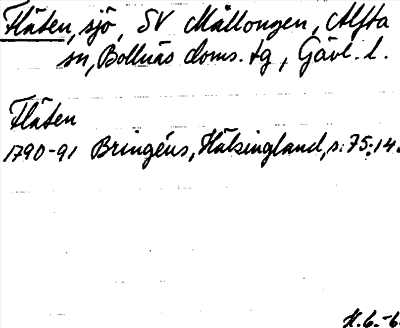 Fläten, sjö, SV Mållongen, Alfta
sn, Bollnäs doms. tg, Gävl. l.
Fläten
1790-91 Bringéus, Hälsingland, s. 75:14.